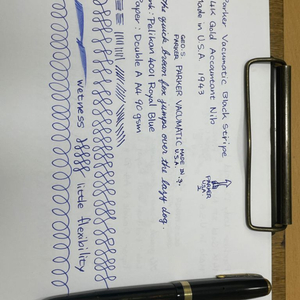 Parker Vacumatic Black stripe
14K Gold Accountant Nib
Made in U.S.A 1943
PARKER
USA
GEO. S.
PARKER PARKER VACUMATIC MADE IN
U.S.A
the quick brown fox jumps over the lazy dog
Ink: Pelikan 4001 Royal Blue
Paper: Double A A4 90 gsm
wetness little flexibility